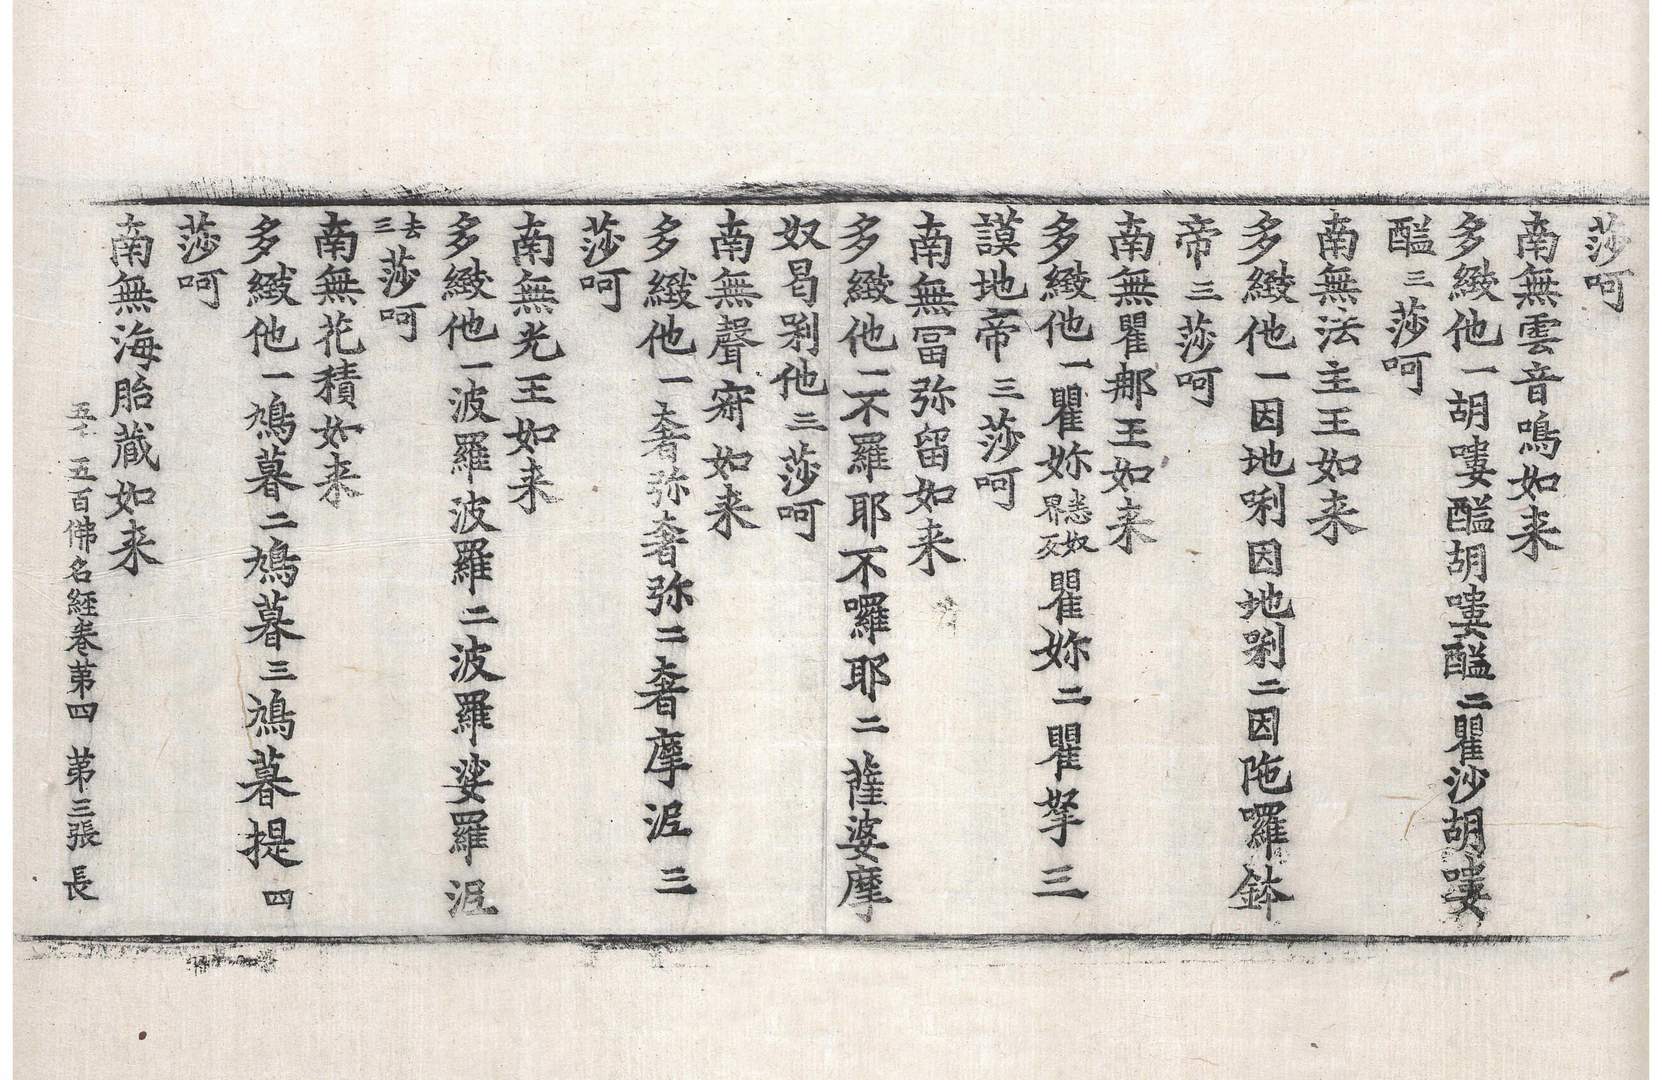 莎呵
南無雲音鳴如来
多緻他一胡嘍醯胡嘍醯二瞿沙胡嘍
醯三莎呵
南無法主王如来
多緻他一因地唎因地𠛼二因陁囉鉢
帝三莎呵
南無瞿那王如来
多緻他一瞿妳奴界反瞿妳二瞿拏三
謨地帝三莎呵
南無冨弥留如来
多緻他一不羅耶不囉耶二薩婆摩
奴曷𠛼他三莎呵
南無聲寂如来
多緻他一奢弥奢弥二奢摩泥三
莎呵
南無光王如来
多緻他一波羅波羅二波羅娑羅泥
去三莎呵
南無花積如来
多緻他一鳩暮二鳩暮三鳩暮提四
莎呵
南無海胎藏如来
五百佛名經卷苐四 苐三張 長